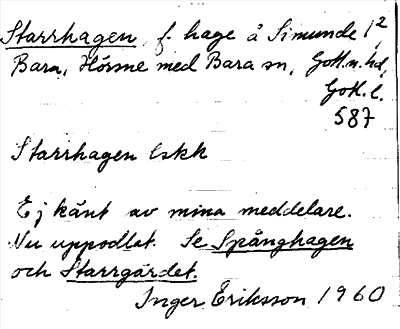 Starrhagen, f. hage å Simunde 1²
Bara, Hörsne med Bara sn, Gotl. n. hd,
Gotl. l.
587
Starrhagen lskk
Ej känt av mina meddelare.
Nu uppodlat. Se Spånghagen
och Starrgärdet.
Inger Eriksson 1960